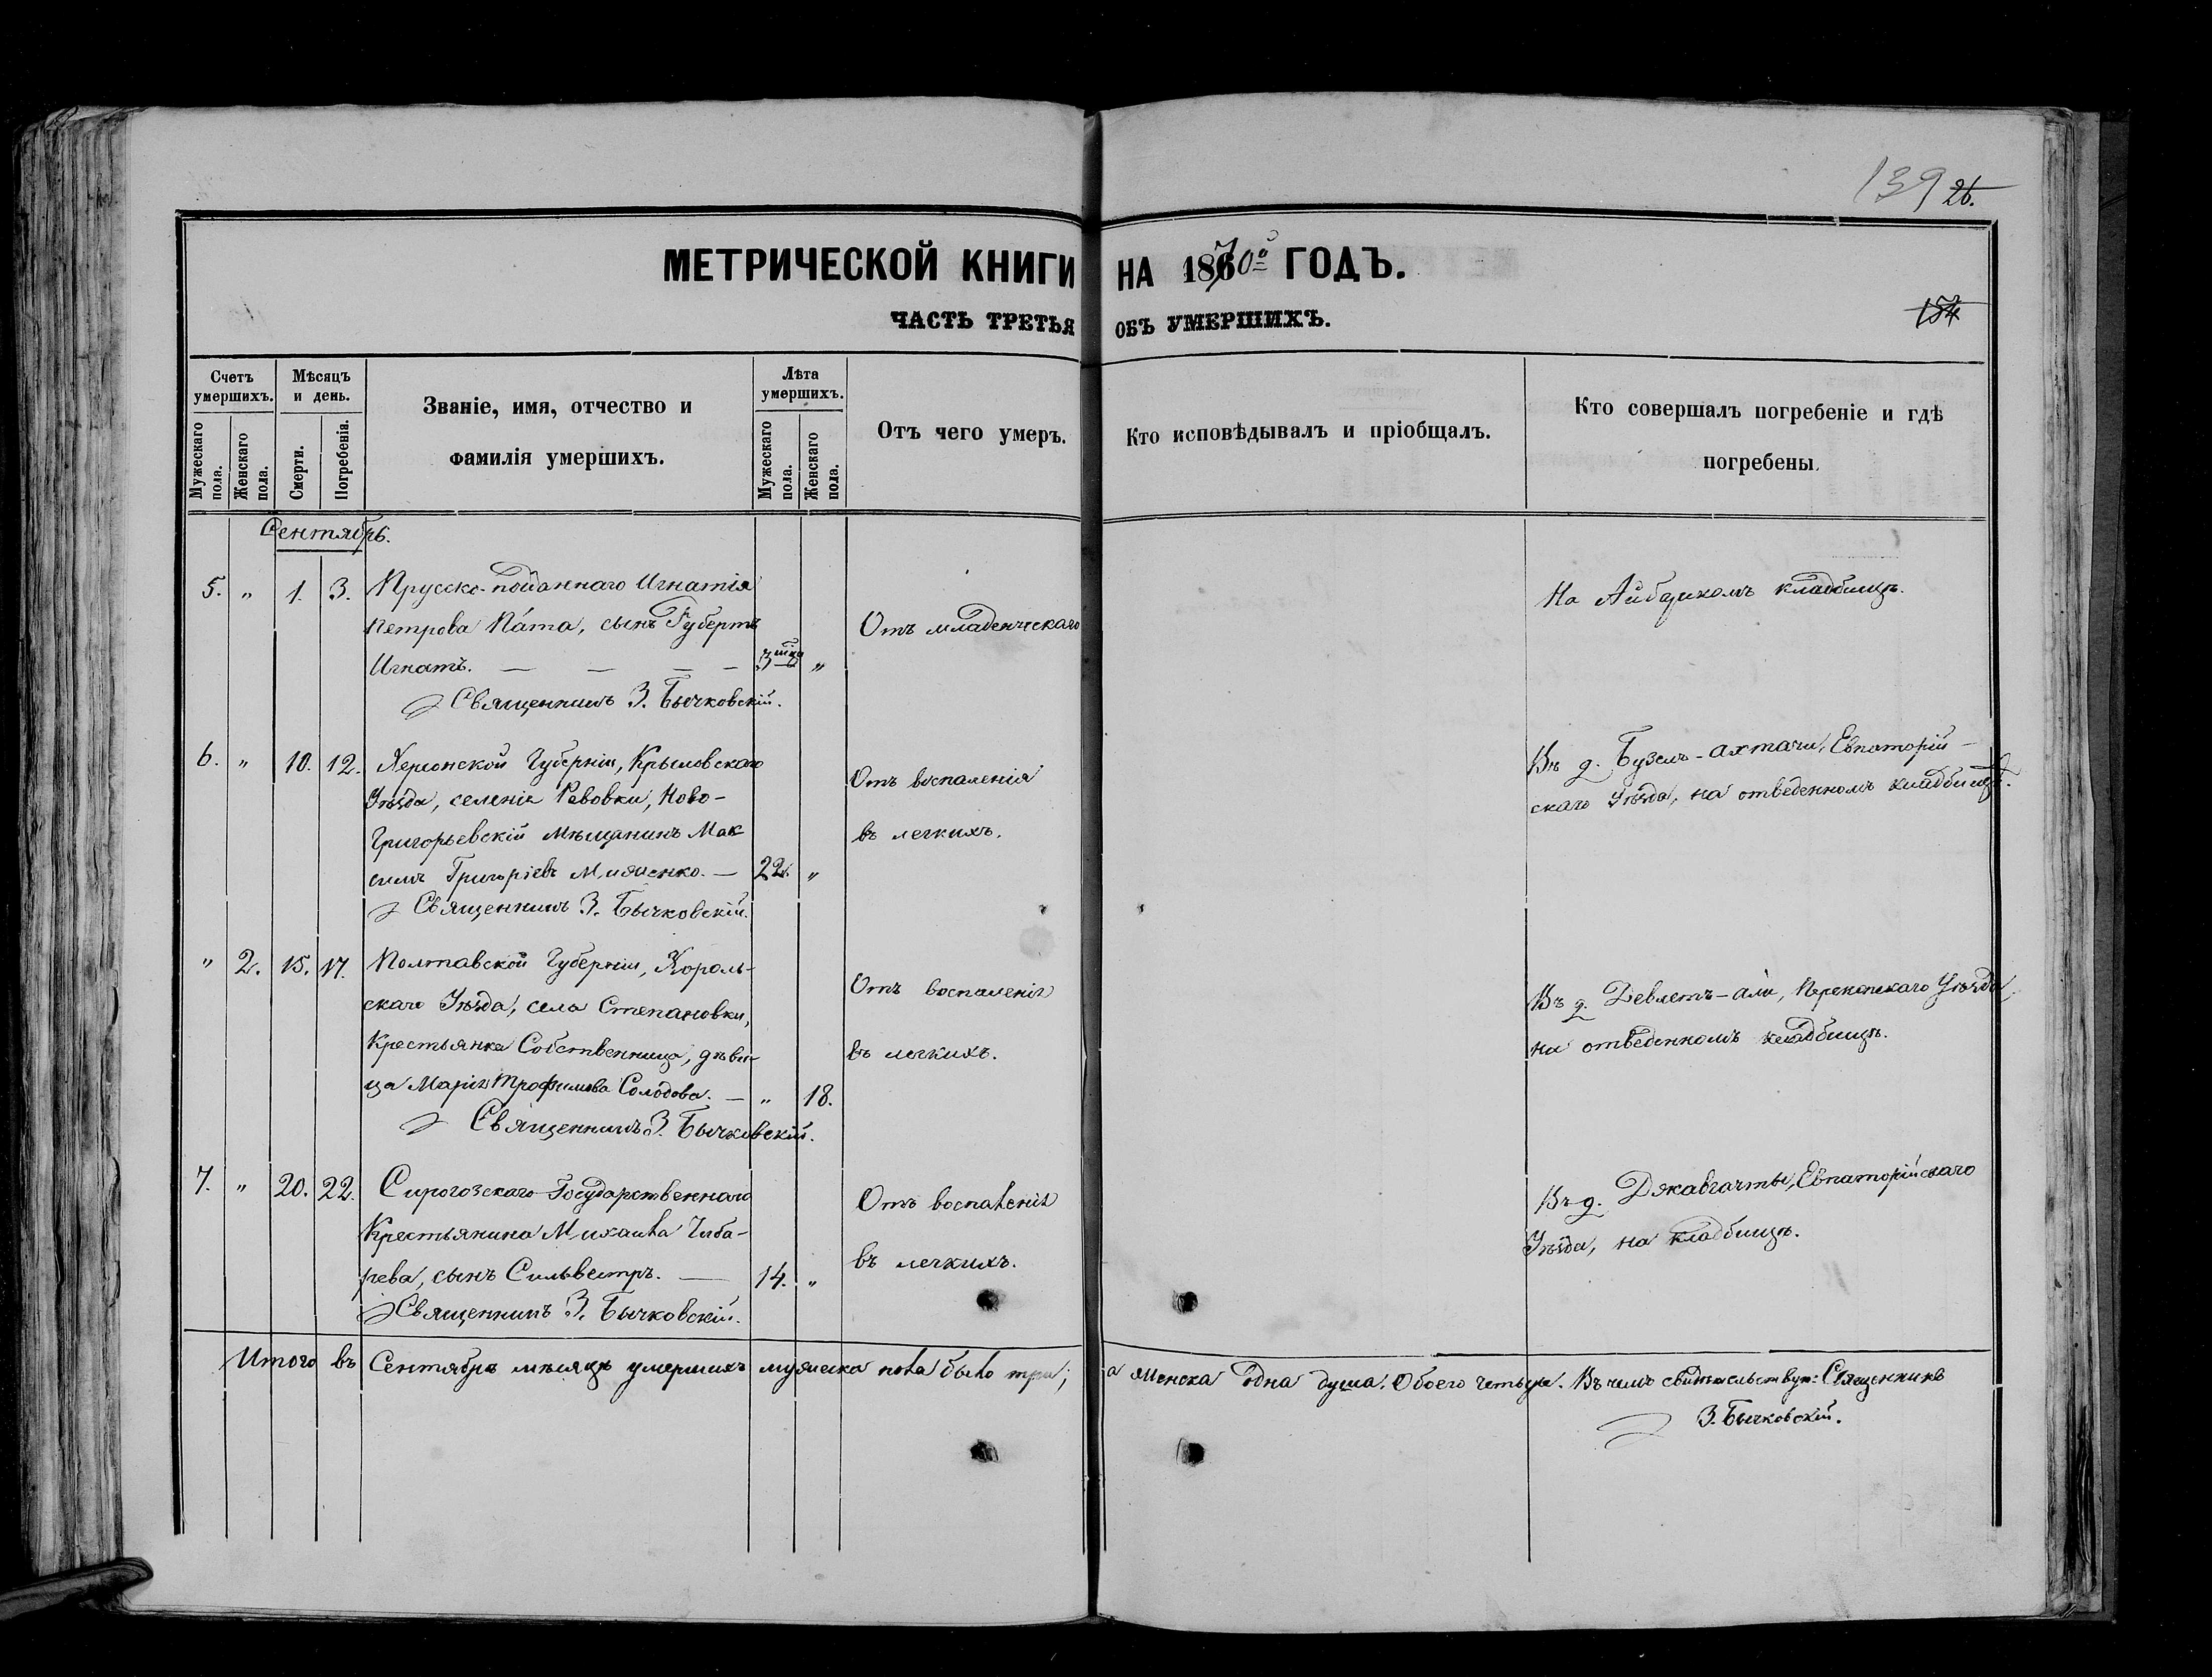 139 26.
МЕТРИЧЕСКОЙ КНИГИ НА 1870й ГОДЪ.
ЧАСТЬ ТРЕТЬЯ ОБЪ УМЕРШИХЪ.
154
Счетъ умершихъ.
Мужескаго пола.
Женскаго пола.
Мѣсяцъ и день.
Смерти.
Погребенія.
Званіе, имя, отчество и
фамилія умершихъ.
Лѣта умершихъ.
Мужескаго пола.
Женскаго пола.
Отъ чего умеръ.
Кто исповѣдывалъ и пріобщалъ.
Кто совершалъ погребеніе и гдѣ
погребены.
Сентябрь.
5. „ 1. 3. Прусско-подданнаго Игнатія
Петрова Пáта, сынъ Губертъ
Игнатъ. — — — — 3 „
Отъ младенческаго
На Айбарскомъ кладбищѣ.
Священникъ З. Бычковскій.
6. „ 10. 12. Херсонской Губерніи, Крыловскаго
Уѣзда, селенія Ревовки, Ново-
Григорьевскій Мѣщанинъ Мак
симъ Григоріевъ — 22. „
Отъ воспаленія
въ легкихъ.
Въ д. Бузелъ-ахтачи, Евпаторій-
скаго Уѣзда, на отведенномъ кладбищѣ.
Священникъ З. Бычковскій.
„ 2. 15. 17. Полтавской Губерніи, Хороль-
скаго Уѣзда, села Степановки,
Крестьянка Собственница, дѣви-
ца Марія Трофимова Солодова. — „ 18.
Отъ воспаленія
въ легкихъ.
Въ д. Девлетъ-али, Перекопскаго Уѣзда,
на отведенномъ кладбищѣ.
Священникъ З. Бычковскій.
7. „ 20. 22. Сирогозскаго Государственнаго
Крестьянина Михаила Чиба-
рева, сынъ Сильвестръ. — 14. „
Отъ воспаленія
въ легкихъ.
Въ д. Джавгачты, Евпаторійскаго
Уѣзда, на кладбищѣ.
Священникъ З. Бычковскій.
Итого въ Сентябрѣ мѣсяцѣ умершихъ мужеска пола было три; а женска одна душа. Обоего четыре. Въ чемъ свидѣтельствую: Священникъ
З. Бычковскій.